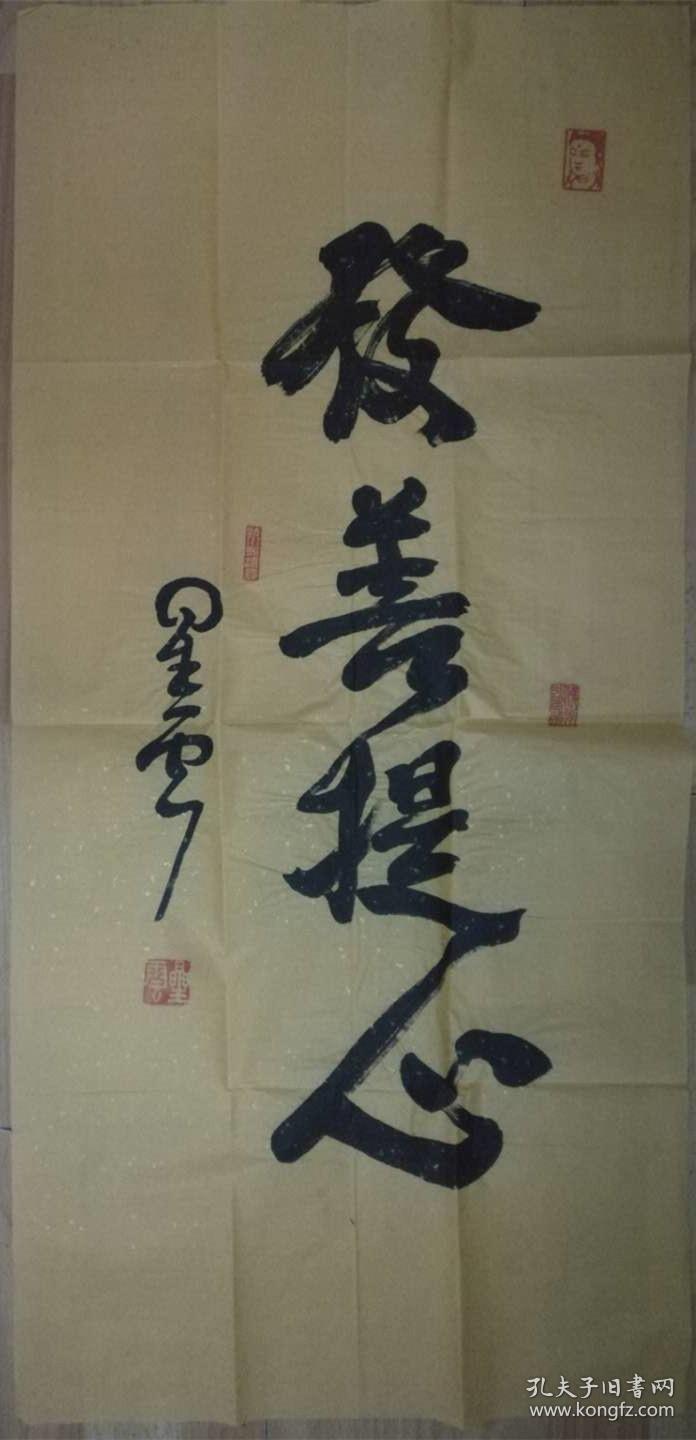 發菩提心
星雲
星雲
孔夫子旧书网
www.kongfz.com